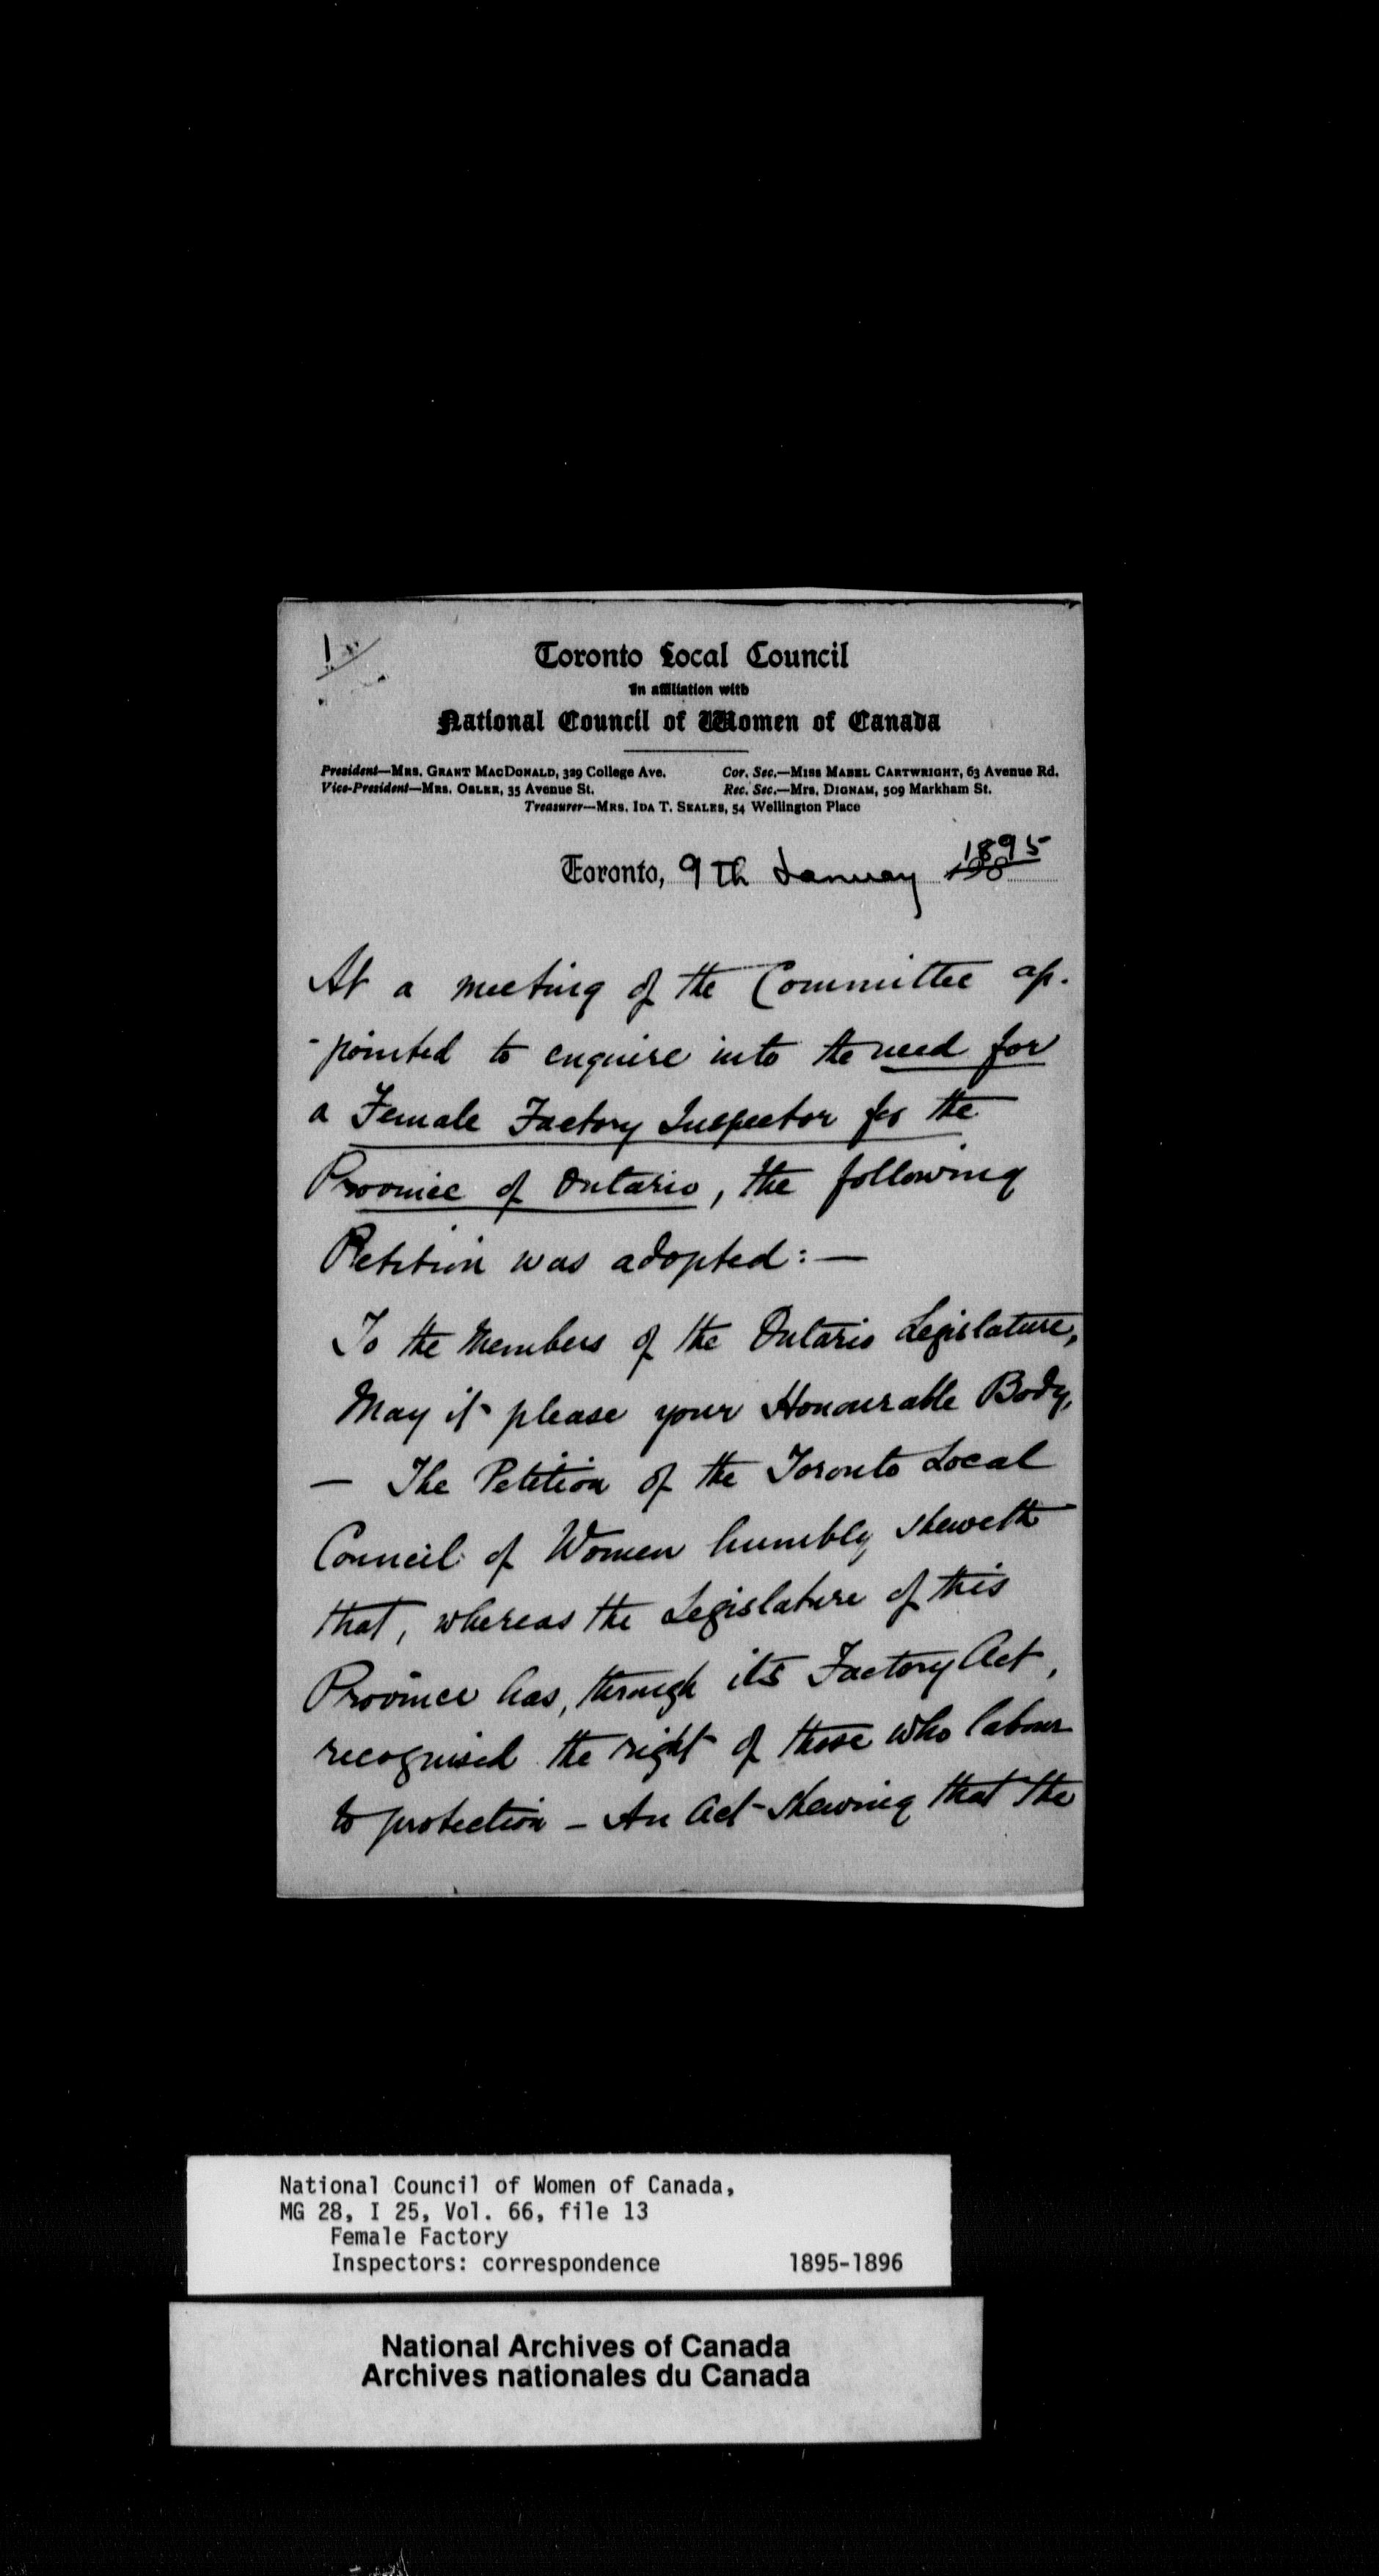 1
Toronto Local Council
In affiliation with
National Council of Women of Canada
President—Mrs. Grant MacDonald, 329 College Ave. Cor. Sec.—Miss Mabel Cartwright, 63 Avenue Rd.
Vice-President—Mrs. Osler, 35 Avenue St. Rec. Sec.—Mrs. Dignam, 509 Markham St.
Treasurer—Mrs. Ida T. Seales, 54 Wellington Place
1895
Toronto, 9th January
At a meeting of the Committee ap-
-pointed to enquire into the need for
a Female Factory Inspector for the
Province of Ontario, the following
Petition was adopted:—
To the Members of the Ontario Legislature,
May it please your Honourable Body,
— The Petition of the Toronto Local
Council of Women humbly sheweth
that, whereas the Legislature of this
Province has, through its Factory Act,
recognised the right of those who labour
to protection – An Act shewing that the
National Council of Women of Canada,
MG 28, I 25, Vol. 66, file 13
Female Factory
Inspectors: correspondence 1895-1896
National Archives of Canada
Archives nationales du Canada